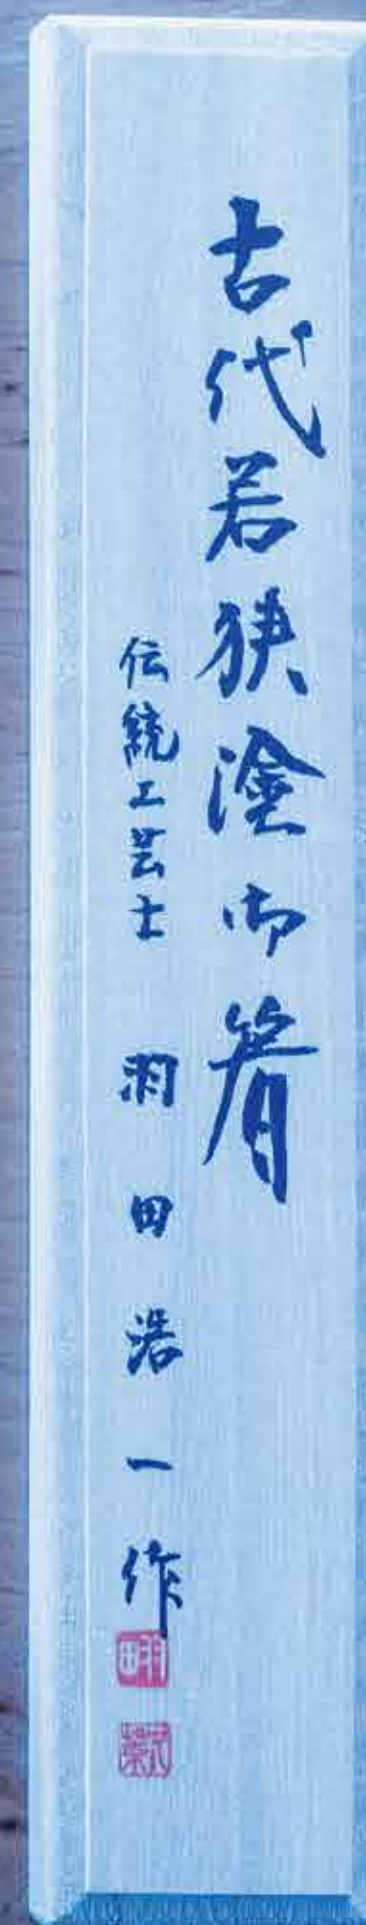 古代若狭塗御箸
伝統工芸士 羽田浩一作
羽田